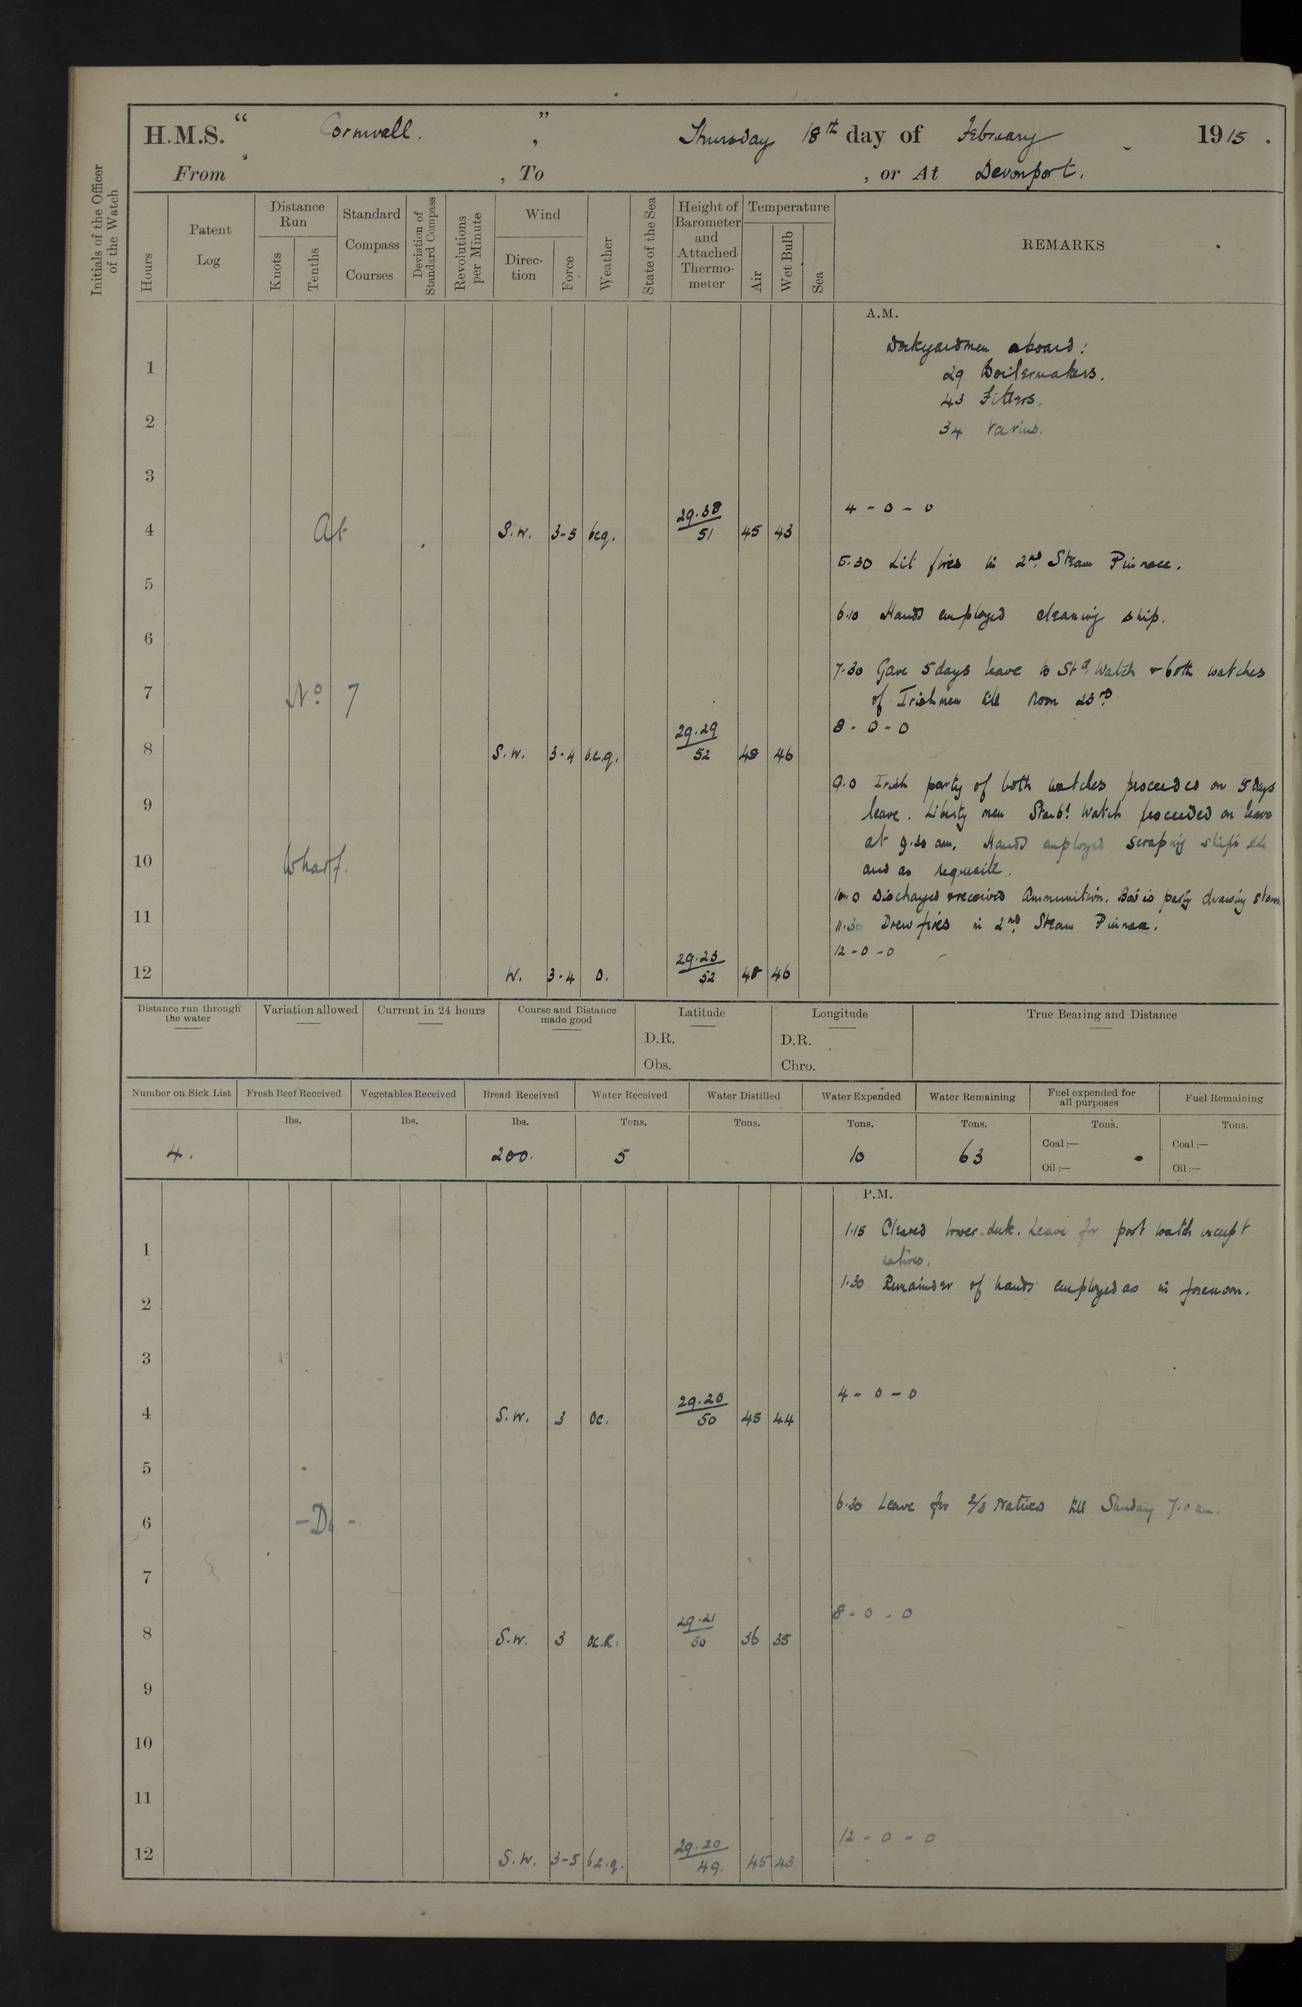 H.M.S. " Cornwall. " , Thursday 18th day of February 1915.
From , To , or At Devonport.
Initials of the Officer of the Watch
Hours
Patent Log
Distance Run
Knots
Tenths
Standard Compass Courses
Deviation of Standard Compass
Revolutions per Minute
Wind
Direction
Force
Weather
State of the Sea
Height of Barometer and Attached Thermometer
Temperature
Air
Wet Bulb
Sea
REMARKS
A.M.
Dockyardmen aboard:
1
29 Boilermakers.
43 Fitters.
2
34 various.
3
4 - 0 - 0
4 At S.W. 3-5 bcq. 29.38/51 45 43
5.30 Lit fires in 2nd Steam Pinnace.
5
6.10 Hands employed cleaning ship.
6
7.30 Gave 5 days leave to Stbd Watch & both watches
7 No 7
of Irishmen till Noon 23rd
8 - 0 - 0
8 S.W. 3-4 b.c.q. 29.29/52 48 46
9.0 Irish party of both watches proceeded on 5 days
9
leave. Liberty men Starbd Watch proceeded on leave
at 9.30 am. Hands employed scraping ship's side
10 Wharf.
and as requisite.
10.0 Discharged & received Ammunition. party drawing stores
11
11.30 Drew fires in 2nd Steam Pinnace.
12 - 0 - 0
12 W. 3-4 O. 29.23/52 48 46
Distance run through the water
Variation allowed
Current in 24 hours
Course and Distance made good
Latitude
D.R.
Obs.
Longitude
D.R.
Chro.
True Bearing and Distance
Number on Sick List
Fresh Beef Received
Vegetables Received
Bread Received
Water Received
Water Distilled
Water Expended
Water Remaining
Fuel expended for all purposes
Fuel Remaining
lbs. lbs. lbs. Tons. Tons. Tons. Tons. Tons. Tons.
4. 200. 5 10 63
Coal:— Coal:—
Oil:— Oil:—
P.M.
1.15 Cleared lower deck. Leave for port watch except
1
natives.
1.30 Remainder of hands employed as in forenoon.
2
3
4 - 0 - 0
4 S.W. 3 oc. 29.20/50 45 44
5
6.30 Leave for natives till Sunday 7.0 am.
6 - Do -
7
8 - 0 - 0
8 S.W. 3 oc.R. 29.21/50 36 35
9
10
11
12 - 0 - 0
12 S.W. 3-5 b.c.q. 29.20/49. 45 43.